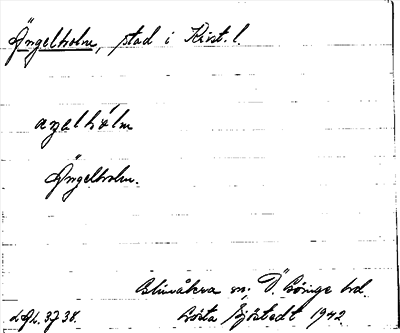 Ängelholm, stad i Krist. l.
aŋəlhólm
Ängelholm.
Blinåkra sn. Ö. Göinge hd.
Gösta Sjöstedt 1942